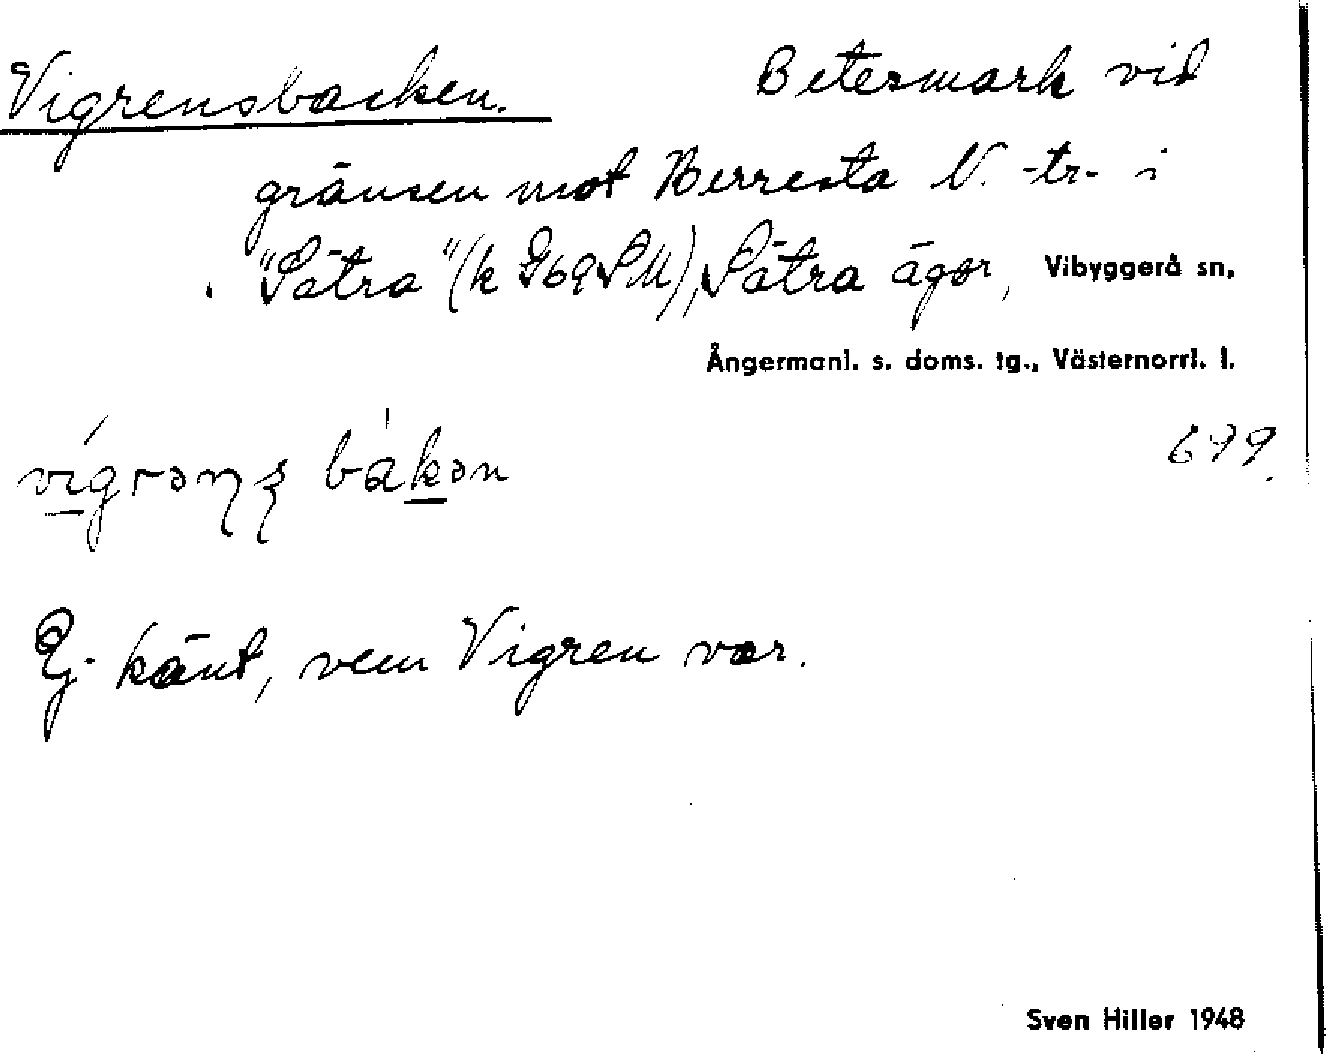 Vigrensbacken. Betesmark vid
gränsen mot Berresta N. -tr- i
"Sätra" (k 969 SM), Sätra ägor, Vibyggerå sn,
Ångermanl. s. doms. tg., Västernorrl. l.
699.
Ej känt, vem Vigren var.
Sven Hiller 1948